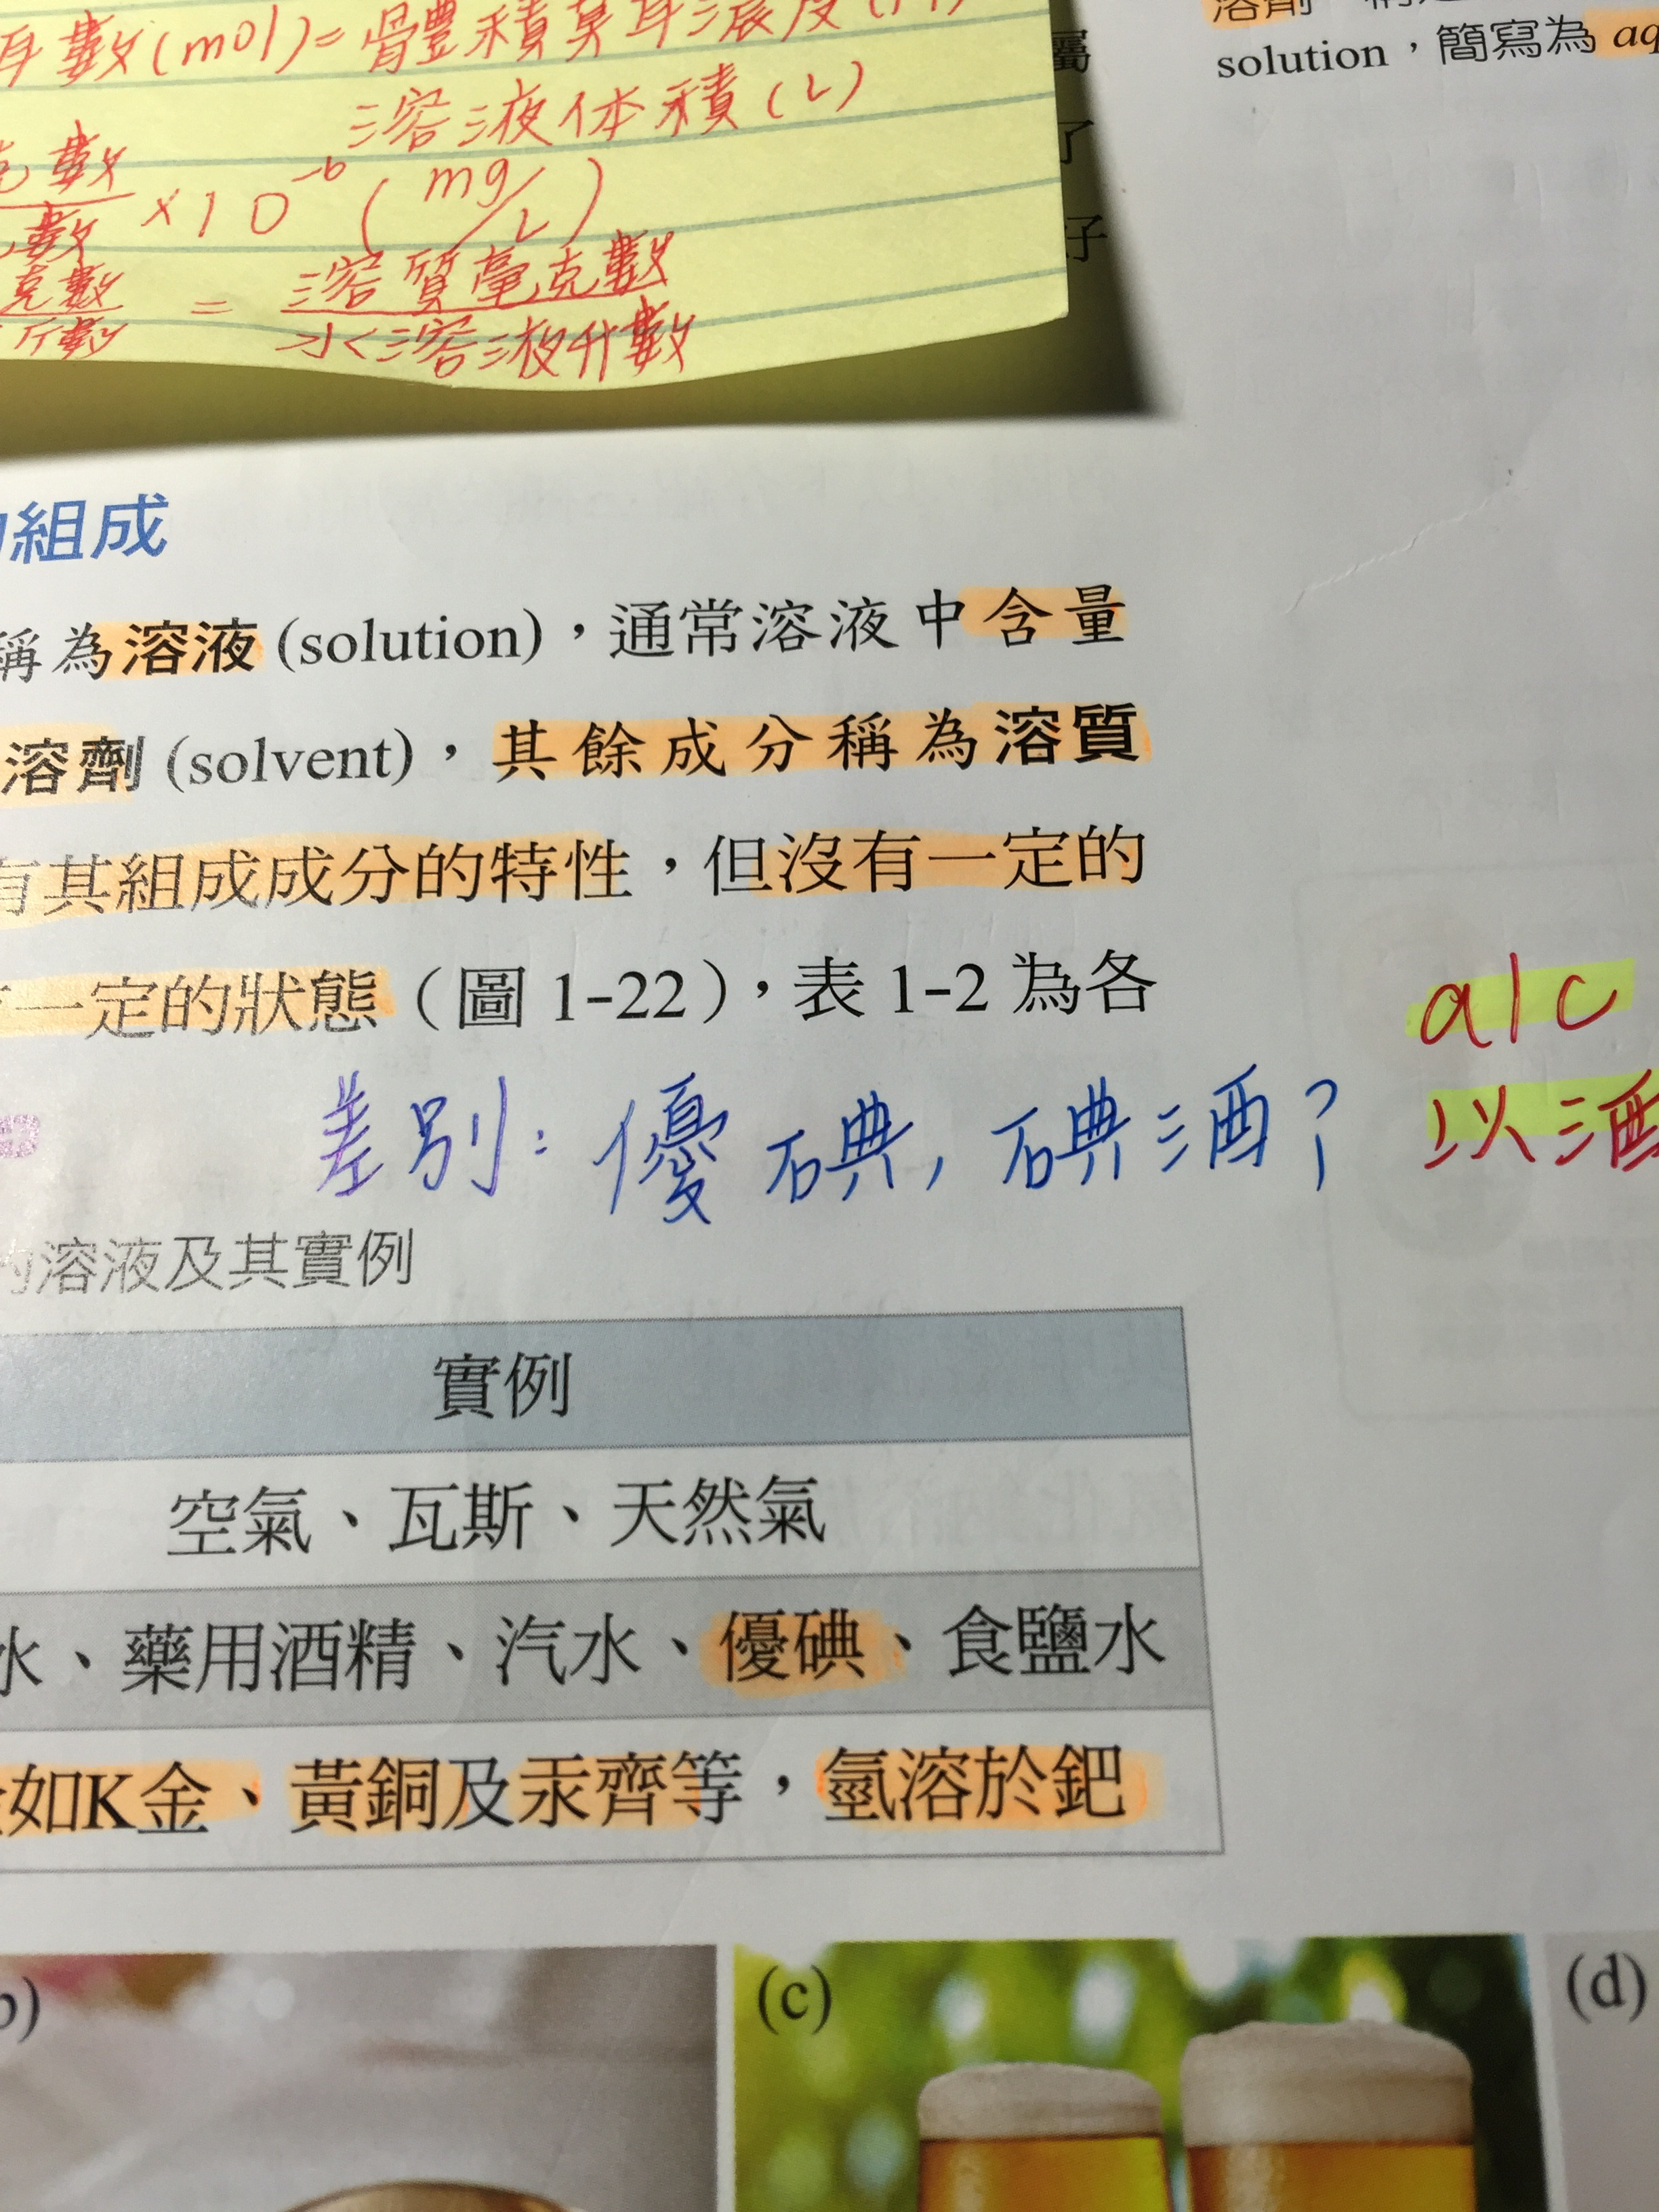 耳數(mol)=體積莫耳濃度
溶液体積(L)
克數
數 ×10⁻⁶ (mg/L)
克數 = 溶質毫克數
斤數 水溶液升數
屬
了
好
溶劑
solution,簡寫為 aq
組成
稱為溶液 (solution),通常溶液中含量
溶劑 (solvent),其餘成分稱為溶質
有其組成成分的特性,但沒有一定的
一定的狀態(圖 1-22),表 1-2 為各
alc
差別:優碘,碘酒?
以酒
的溶液及其實例
實例
空氣、瓦斯、天然氣
水、藥用酒精、汽水、優碘、食鹽水
如K金、黃銅及汞齊等,氫溶於鈀
(c)
(d)